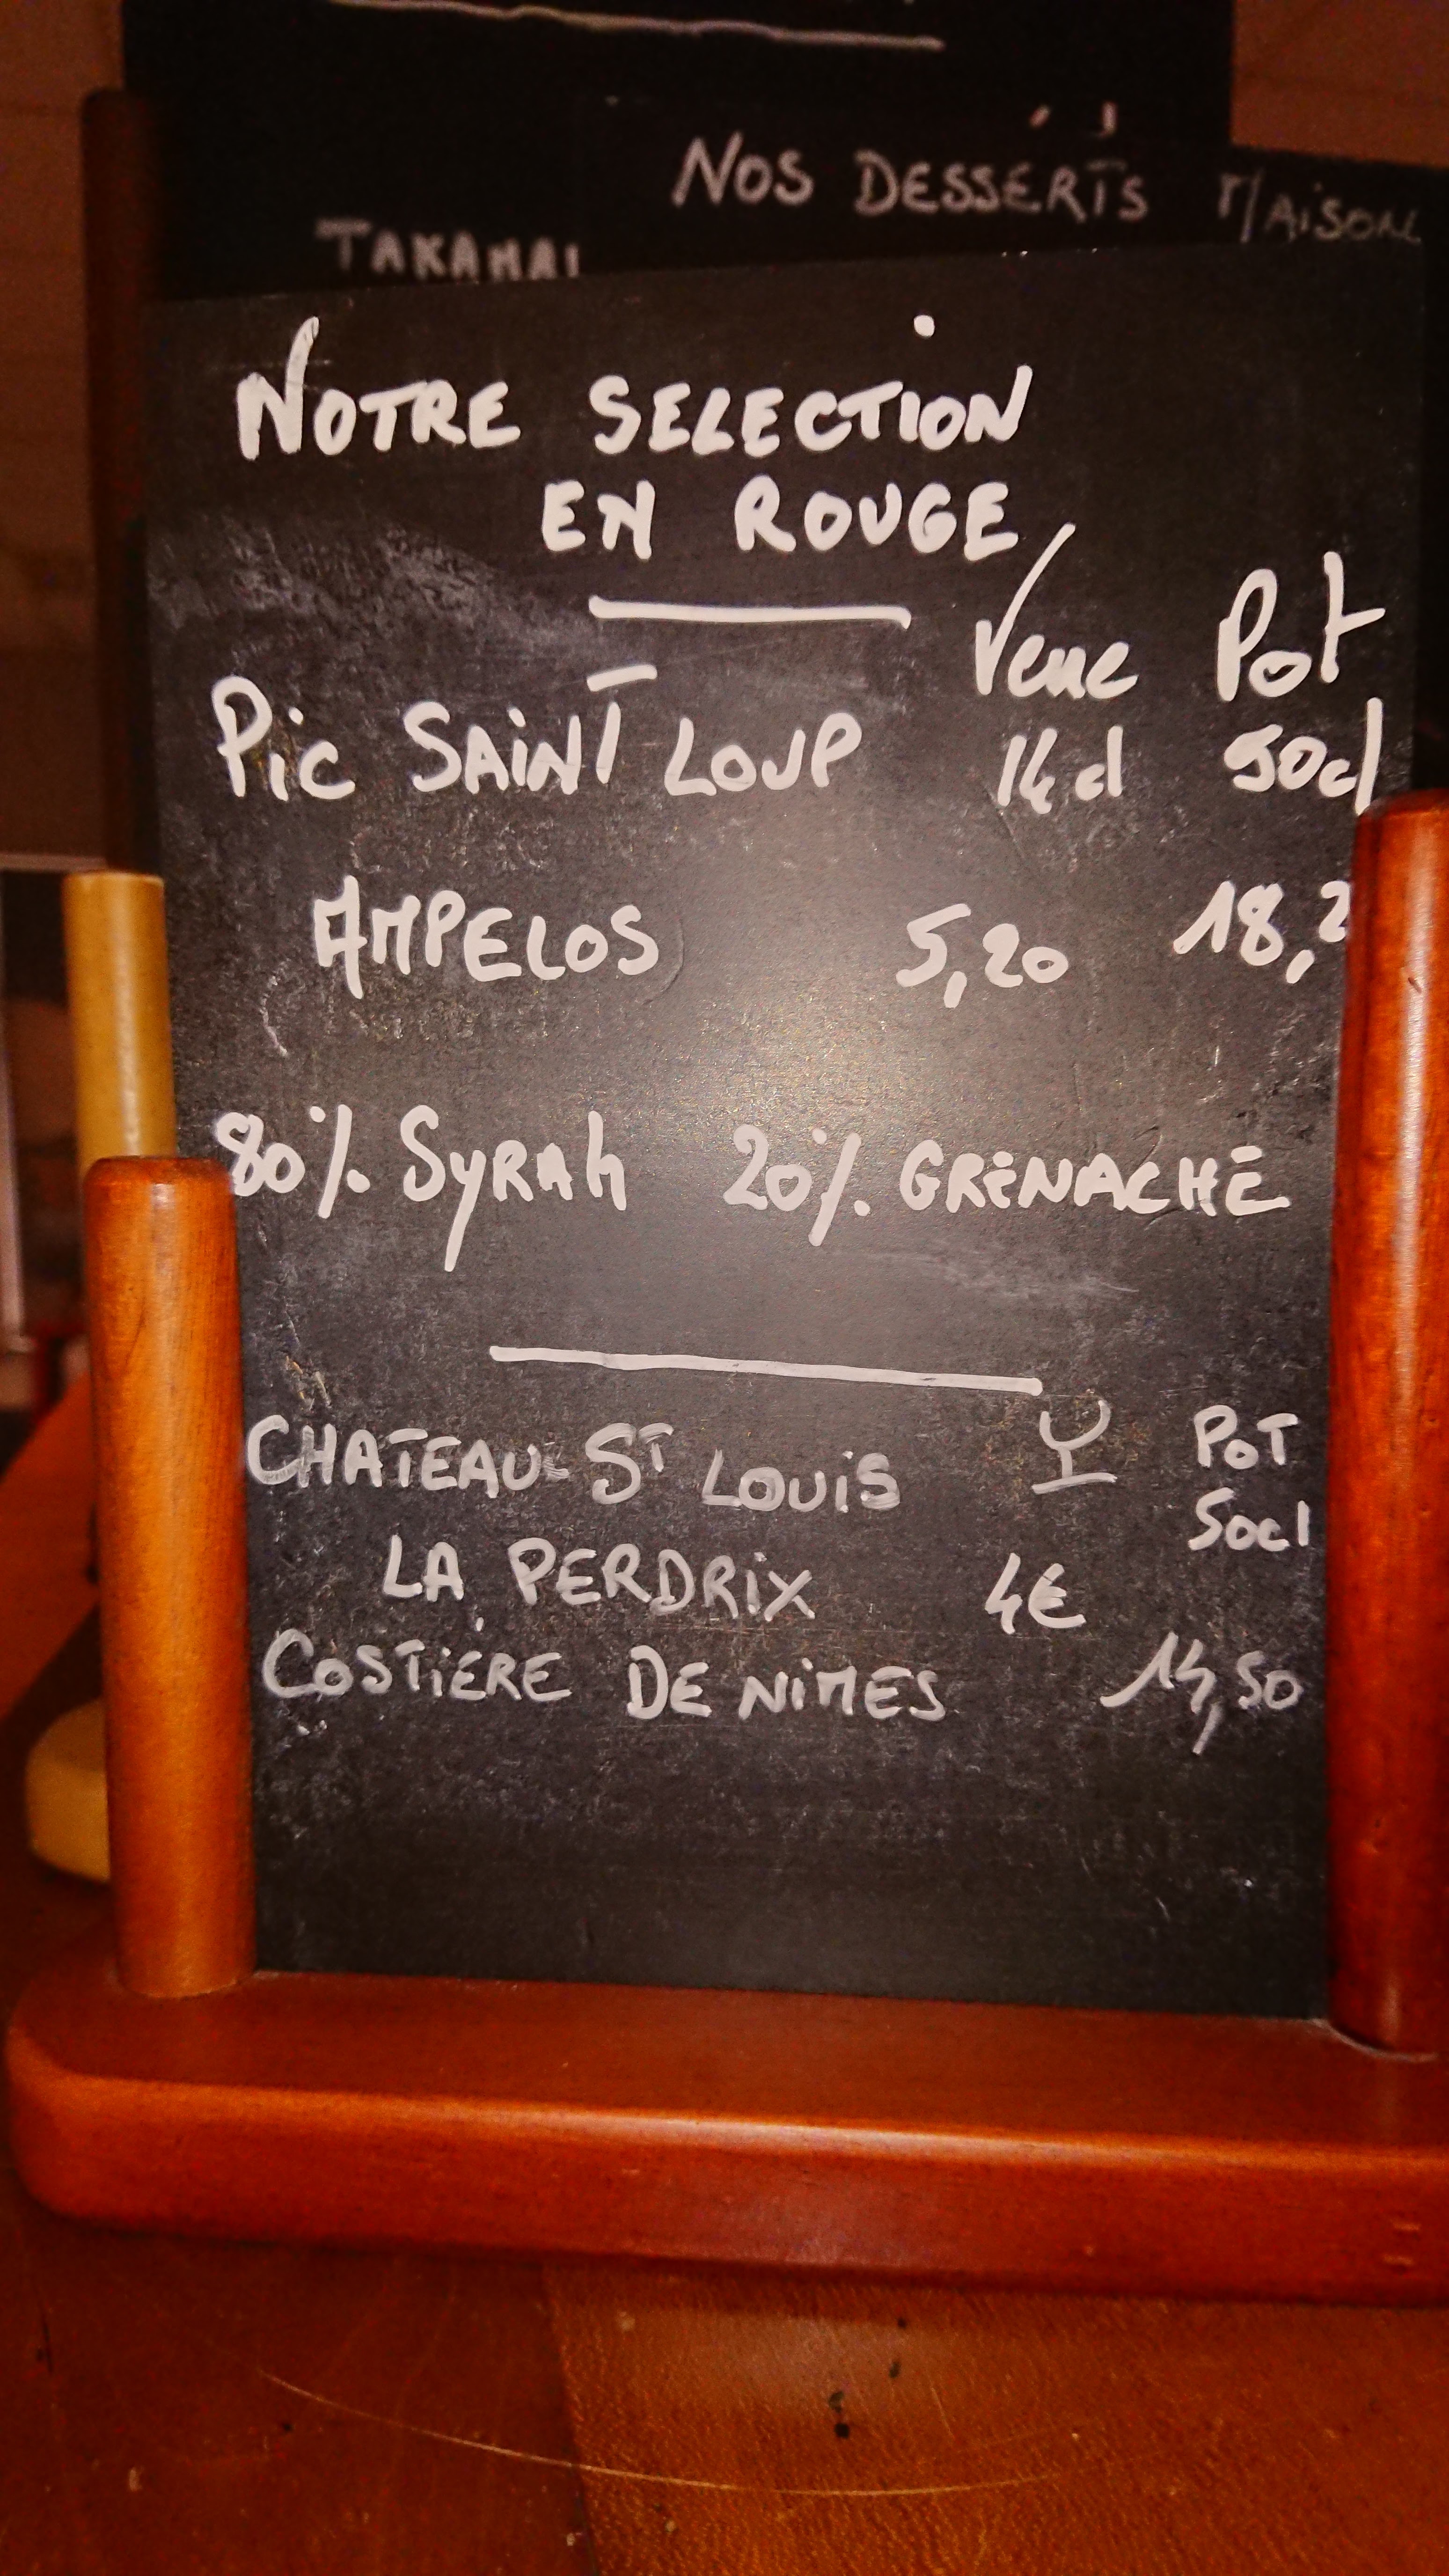 NOS DESSERTS MAISON
TAKAMAI
NOTRE SELECTION
EN ROUGE
Verre Pot
PIC SAINT LOUP 14cl 50cl
AMPELOS 5,20 18,2
80% SYRAH 20% GRENACHE
CHATEAU ST LOUIS POT
50cl
LA PERDRIX 4€
COSTIERE DE NIMES 14,50